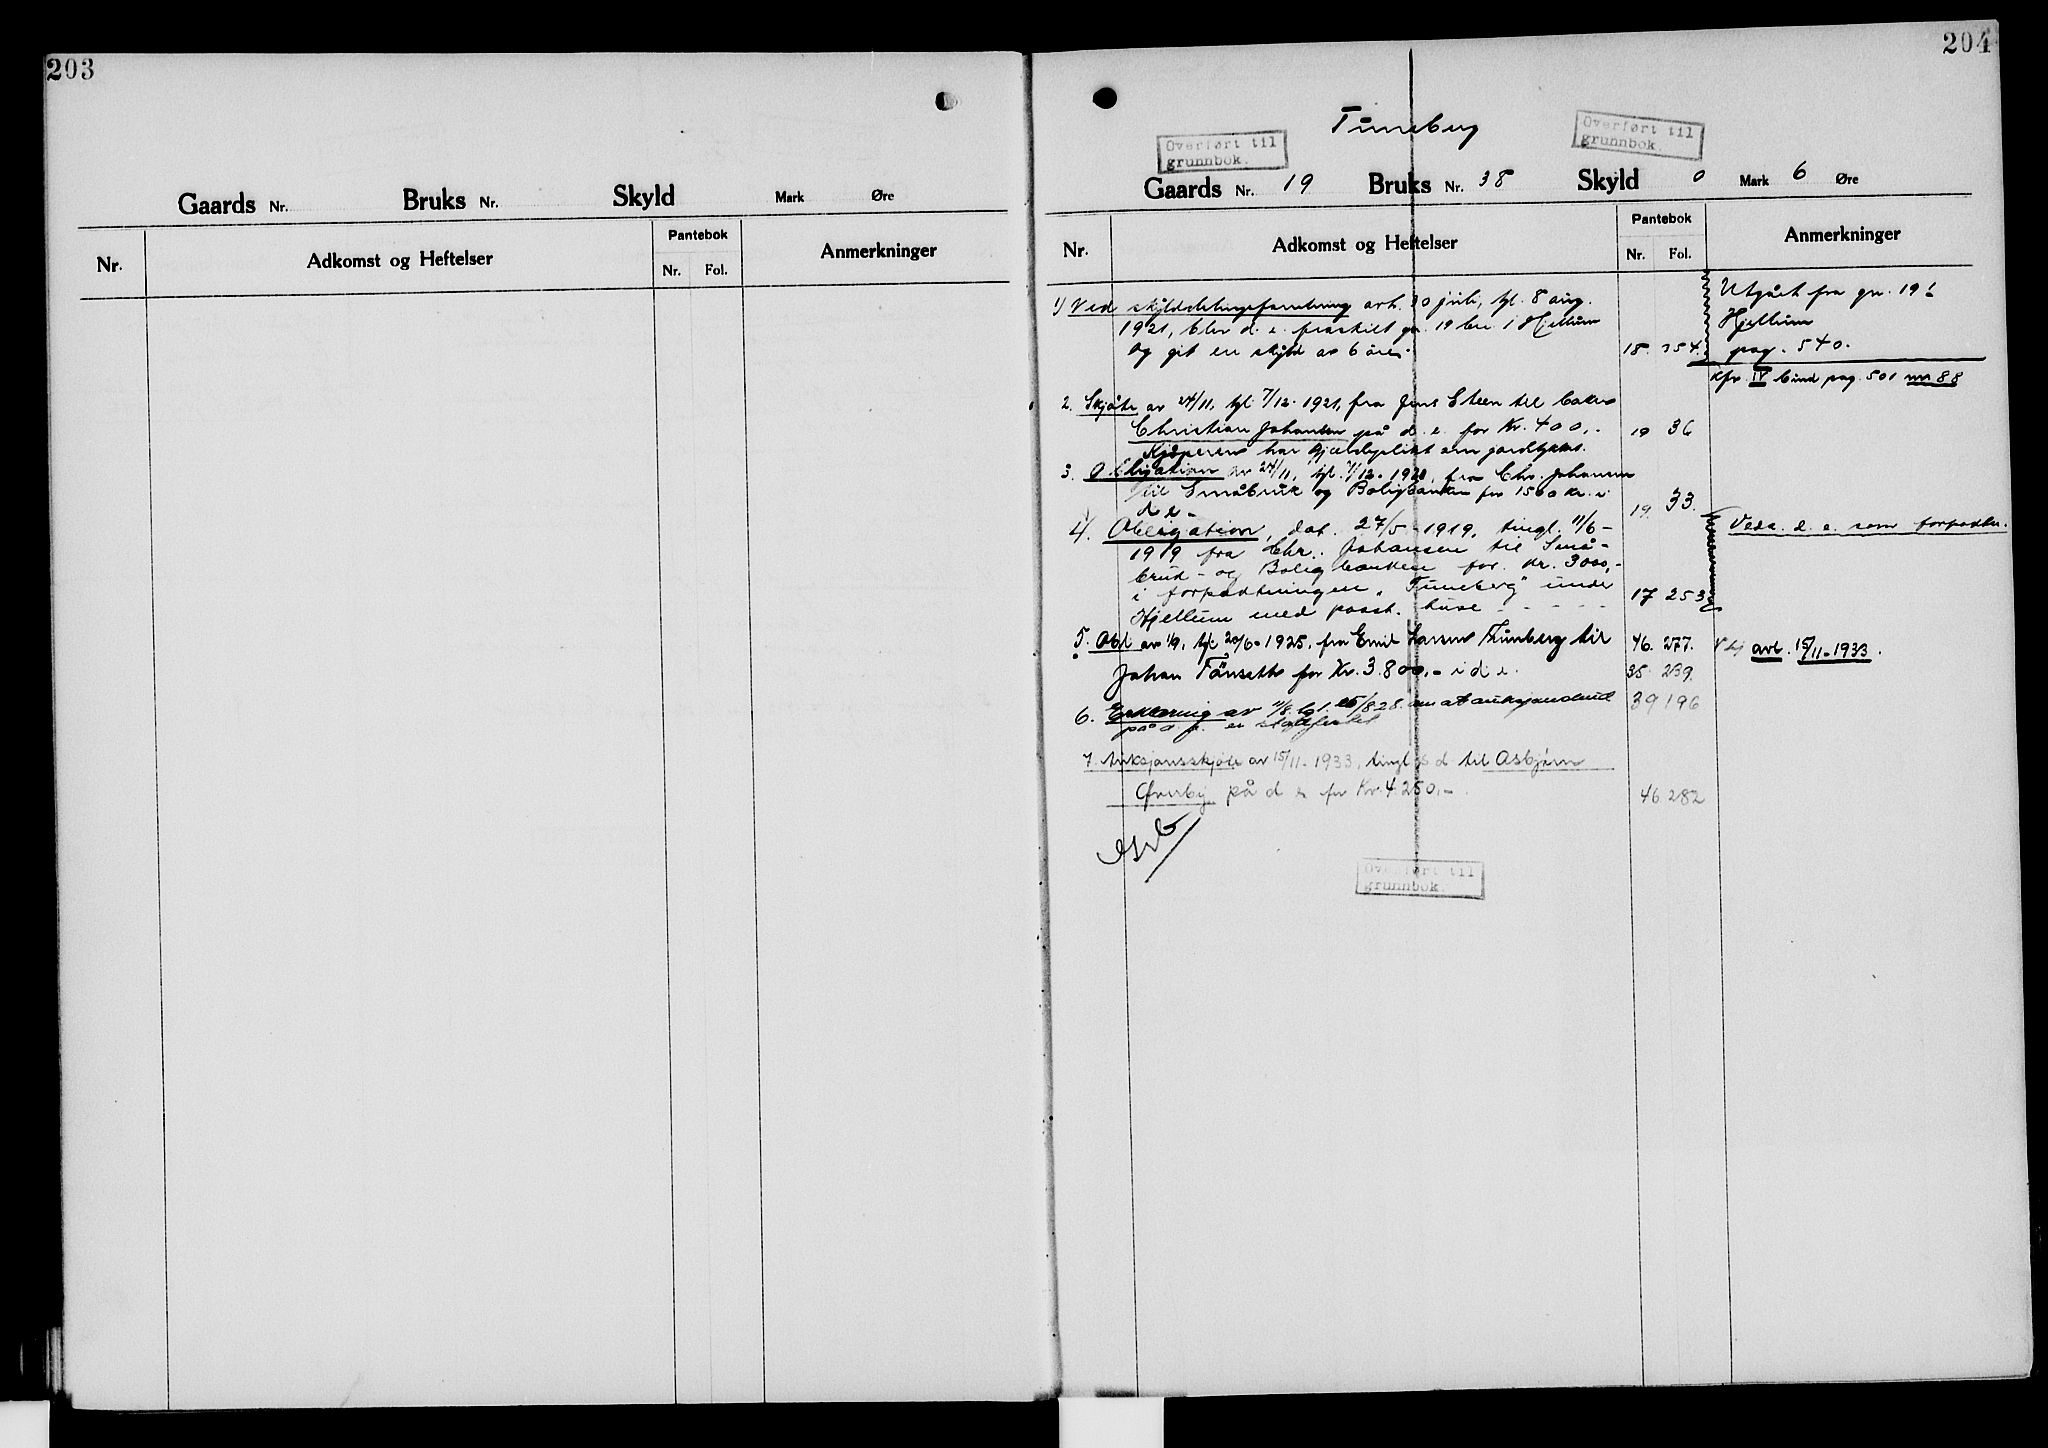 203
Gaards Nr. Bruks Nr. Skyld Mark Øre
Nr. Adkomst og Heftelser Pantebok Anmerkninger
Nr. Fol.
204
Tuneberg
Overført til
grunnbok.
Overført til
grunnbok.
Gaards Nr. 19 Bruks Nr. 38 Skyld 0 Mark 6 Øre
Nr. Adkomst og Heftelser Pantebok Anmerkninger
Nr. Fol.
1) Ved skylddelingsforretning avh. 30 juli, tgl. 8 aug.
1921, blev d. e. fraskilt gn. 19 bn. 1 Hjellum
og git en skyld av 6 øre. 18. 354.
Utgået fra gn. 19
Hjellum
pag. 540.
Kfr. IV bind pag. 501 nr 88
2. Skjøte av 24/11, tgl. 7/12. 1921, fra Jens Steen til
Christian Johansen på d. e. for Kr. 400,- 19 36
Kjøperen har gjældsplikt
3. Obligation av 24/11, tgl. 7/12. fra Chr. Johansen
til Småbruk og Boligbanken for 1500 kr. i
d e - 19. 33.
4/. Obligation, dat. 27/5 - 1919, tingl. 11/6 -
1919 fra Chr. Johansen til Små-
bruk - og Boligbanken for kr. 3000,-
i forpaktningen "Tuneberg" under
Hjellum med påst. huse - - - - - 17 253
Veds. d. e. som forpaktn.
5. Obl av tgl. 20/6. 1925, fra Emil Larsen Tuneberg til 46. 277.
Johan Tønseth for Kr. 3.800,- i d e. 35. 239.
avl. 15/11-1933.
6. Erklæring av 11/8. tgl. 25/8 28. om at auksjonsbud 39 196
på d. e. er stadfestet
7. Auksjonsskjøte av 15/11 - 1933, tingl s d til Asbjørn
Øverby på d e for Kr. 4.250,- 46. 282
Overført til
grunnbok.